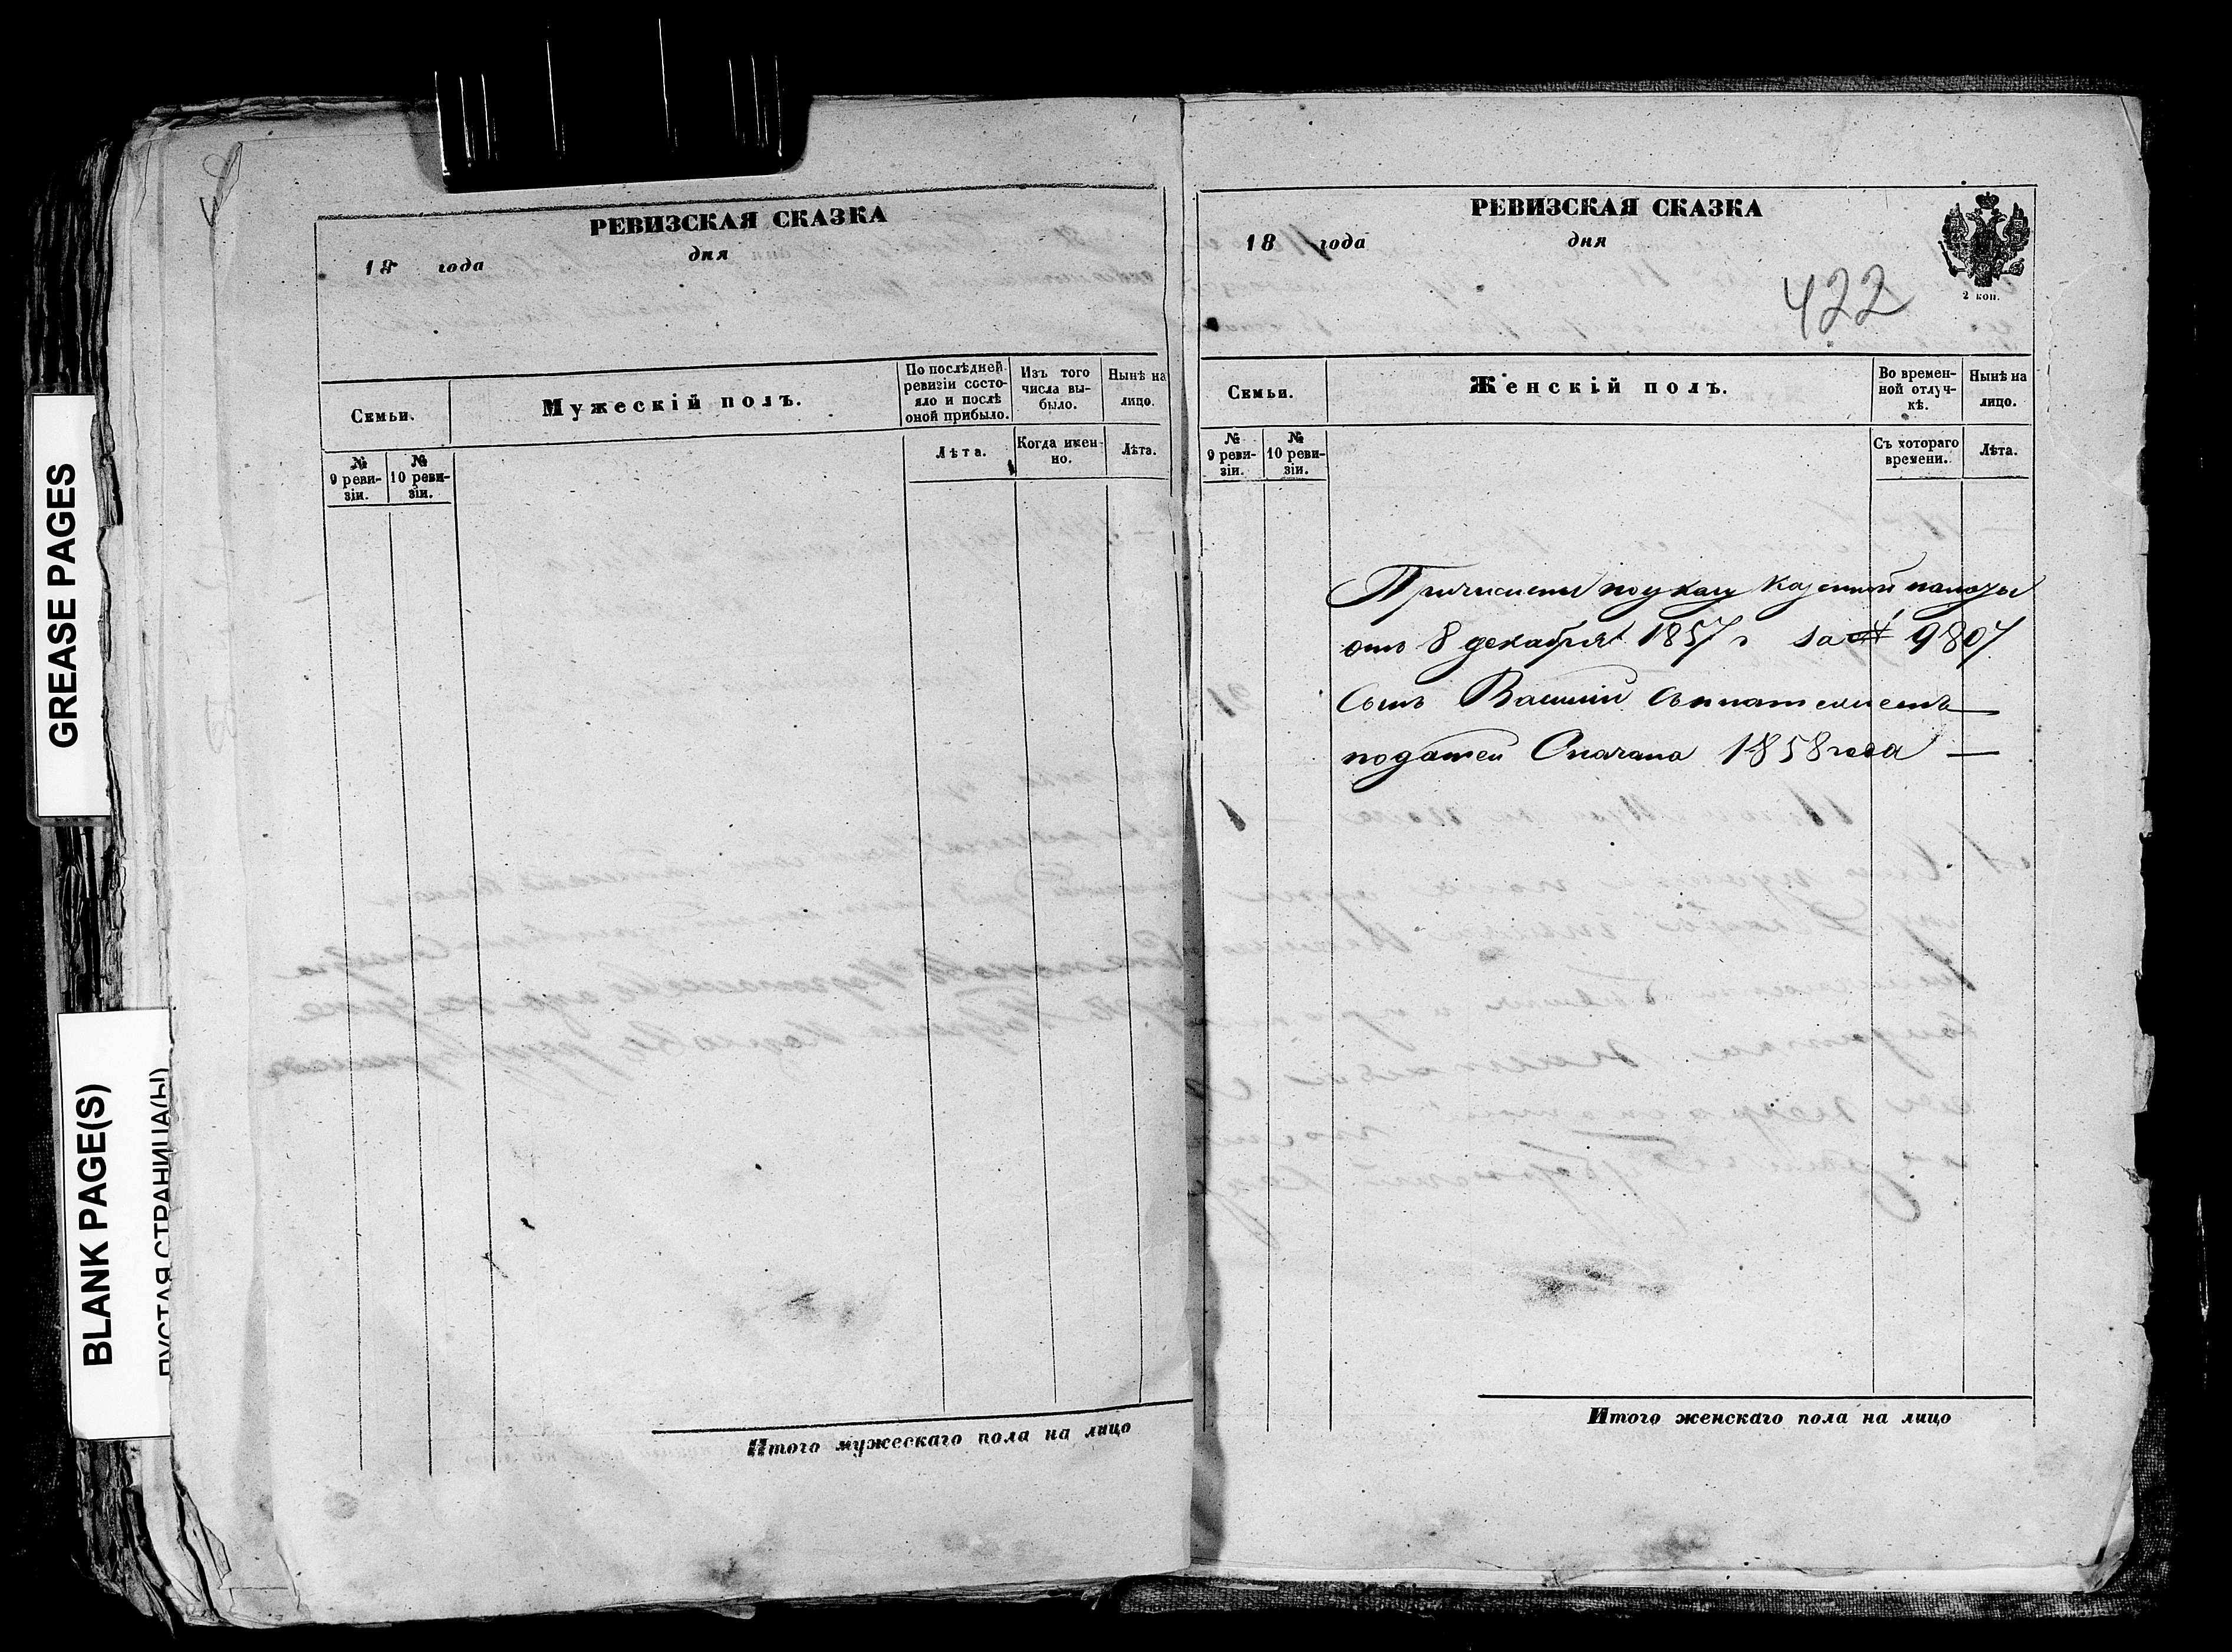 GREASE PAGES
BLANK PAGE(S)
ПУСТАЯ СТРАНИЦА(Ы)
РЕВИЗСКАЯ СКАЗКА
18 года дня
Семьи.
Мужескій полъ.
По послѣдней ревизіи состояло и послѣ оной прибыло.
Изъ того числа выбыло.
Нынѣ на лицо.
№ 9 ревизіи.
№ 10 ревизіи.
Лѣта.
Когда именно.
Лѣта.
Итого мужескаго пола на лицо
РЕВИЗСКАЯ СКАЗКА
18 года дня
2 коп.
422
Семьи.
Женскій полъ.
Во временной отлучкѣ.
Нынѣ на лицо.
№ 9 ревизіи.
№ 10 ревизіи.
Съ котораго времени.
Лѣта.
Причислены по указу Казенной палаты
отъ 8 декабря 1857 г за № 9807
Сынъ Василий съ платежемъ
податей Сначала 1858 года
Итого женскаго пола на лицо